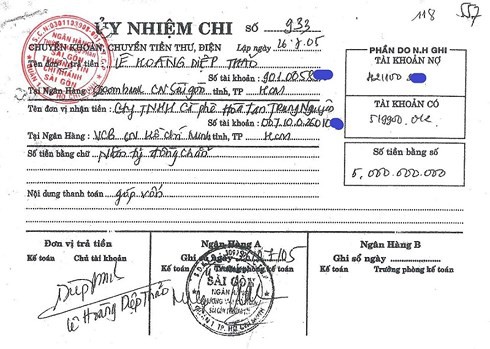 118 557
ỦY NHIỆM CHI SỐ 933
CHUYỂN KHOẢN, CHUYỂN TIỀN THƯ, ĐIỆN Lập ngày 26.7.05
PHẦN DO N.H GHI
Tên đơn vị trả tiền: LÊ HOÀNG DIỆP THẢO
TÀI KHOẢN NỢ
Số tài khoản: 901.0058
Tại Ngân Hàng: CN Sài gòn tỉnh, TP HCM
TÀI KHOẢN CÓ
Tên đơn vị nhận tiền: Cty TNHH Cà phê Hòa Tan Trung Nguyên
Số tài khoản: 007.10.0.
519900.
Tại Ngân Hàng: VCB CN Hồ Chí Minh tỉnh, TP HCM
Số tiền bằng chữ Năm tỷ đồng chẵn
Số tiền bằng số
5,000.000.000
Nội dung thanh toán góp vốn
Đơn vị trả tiền
Kế toán Chủ tài khoản
Lê Hoàng Diệp Thảo
Ngân Hàng A
Ghi sổ ngày
Kế toán Trưởng phòng kế toán
SÀI GÒN
Ngân Hàng B
Ghi sổ ngày
Kế toán Trưởng phòng kế toán